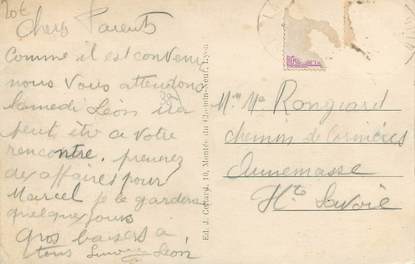 20t
Chers Parents
Comme il est convenu
nous vous attendons
Samedi Léon ira
peut être a votre
rencontre. prenez
des affaires pour
Marcel je le garderai
quelques jours
Gros baisers a
tous Léon
Ed. J. Cottard, 10, Montée du Chemin-Neuf, Lyon
Mr Me Rongiard
chemin de
Annemasse
Hte Savoie